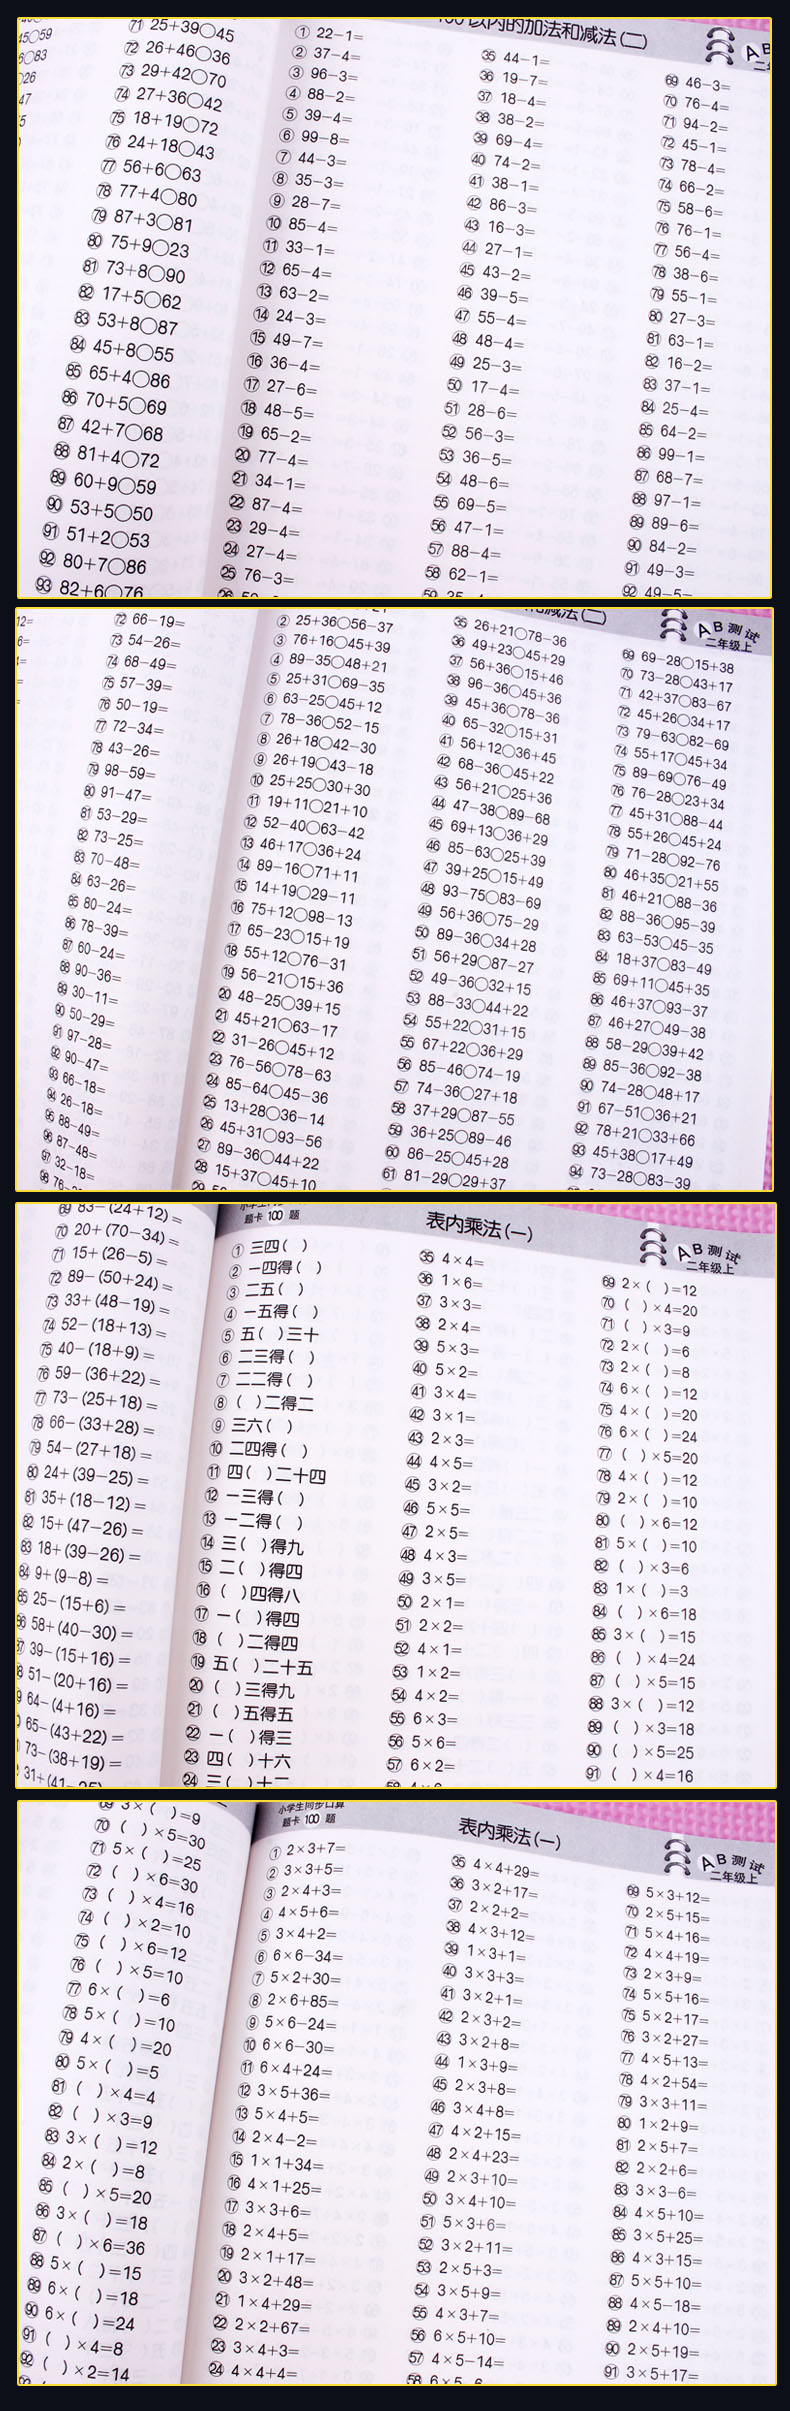 45○59
6○83
○26
47
71 25+39○45
72 26+46○36
73 29+42○70
74 27+36○42
75 18+19○72
76 24+18○43
77 56+6○63
78 77+4○80
79 87+3○81
80 75+9○23
81 73+8○90
82 17+5○62
83 53+8○87
84 45+8○55
85 65+4○86
86 70+5○69
87 42+7○68
88 81+4○72
89 60+9○59
90 53+5○50
91 51+2○53
92 80+7○86
93 82+6○76
100以内的加法和减法(二)
① 22-1=
② 37-4=
③ 96-3=
④ 88-2=
⑤ 39-4=
⑥ 99-8=
⑦ 44-3=
⑧ 35-3=
⑨ 28-7=
⑩ 85-4=
⑪ 33-1=
⑫ 65-4=
⑬ 63-2=
⑭ 24-3=
⑮ 49-7=
⑯ 36-4=
⑰ 27-6=
⑱ 48-5=
⑲ 65-2=
⑳ 77-4=
21 34-1=
22 87-4=
23 29-4=
24 27-4=
25 76-3=
35 44-1=
36 19-7=
37 18-4=
38 38-2=
39 69-4=
40 74-2=
41 38-1=
42 86-3=
43 16-3=
44 27-1=
45 43-2=
46 39-5=
47 55-4=
48 48-4=
49 25-3=
50 17-4=
51 28-6=
52 56-3=
53 36-5=
54 48-6=
55 69-5=
56 47-1=
57 88-4=
58 62-1=
AB
二年
69 46-3=
70 76-4=
71 94-2=
72 45-1=
73 78-4=
74 66-2=
75 58-6=
76 76-1=
77 56-4=
78 38-6=
79 55-1=
80 27-3=
81 63-1=
82 16-2=
83 37-1=
84 25-4=
85 64-2=
86 99-1=
87 68-7=
88 97-1=
89 89-6=
90 84-2=
91 49-3=
92 49-5=
12=
6=
72 66-19=
73 54-26=
74 68-49=
75 57-39=
76 50-19=
77 72-34=
78 43-26=
79 98-59=
80 91-47=
81 53-29=
82 73-25=
83 70-48=
84 63-26=
85 80-24=
86 78-39=
87 60-24=
88 90-36=
89 30-11=
90 50-29=
91 97-28=
92 90-47=
93 66-18=
94 26-18=
95 88-49=
96 87-48=
97 32-18=
② 25+36○56-37
③ 76+16○45+39
④ 89-35○48+21
⑤ 25+31○69-35
⑥ 63-25○45+12
⑦ 78-36○52-15
⑧ 26+18○42-30
⑨ 26+19○43-18
⑩ 25+25○30+30
⑪ 19+11○21+10
⑫ 52-40○63-42
⑬ 46+17○36+24
⑭ 89-16○71+11
⑮ 14+19○29-11
⑯ 75+12○98-13
⑰ 65-23○15+19
⑱ 55+12○76-31
⑲ 56-21○15+36
⑳ 48-25○39+15
21 45+21○63-17
22 31-26○45+12
23 76-56○78-63
24 85-64○45-36
25 13+28○36-14
26 45+31○93-56
27 89-36○44+22
28 15+37○45+10
35 26+21○78-36
36 49+23○45+29
37 56+36○15+46
38 96-36○45+36
39 45+36○78-36
40 65-32○15+31
41 56+12○36+45
42 68-36○45+22
43 56+21○25+36
44 47-38○89-68
45 69+13○36+29
46 85-63○25+39
47 39+25○15+49
48 93-75○83-69
49 56+36○75-29
50 89-36○34+28
51 56+29○87-27
52 49-36○32+15
53 88-33○44+22
54 55+22○31+15
55 67+22○36+29
56 85-46○74-19
57 74-36○27+18
58 37+29○87-55
59 36+25○89-46
60 86-25○45+28
61 81-29○29+37
AB测试
二年级上
69 69-28○15+38
70 73-28○43+17
71 42+37○83-67
72 45+26○34+17
73 79-63○82-69
74 55+17○45+34
75 89-69○76-49
76 76-28○23+34
77 45+31○88-44
78 55+26○45+24
79 71-28○92-76
80 46+35○21+55
81 46+21○88-36
82 88-36○95-39
83 63-53○45-35
84 18+37○83-49
85 69+11○45+35
86 46+37○93-37
87 46+27○49-38
88 58-29○39+42
89 85-36○92-38
90 74-28○48+17
91 67-51○36+21
92 78+21○33+66
93 45+38○17+49
94 73-28○83-39
69 83-(24+12)=
70 20+(70-34)=
71 15+(26-5)=
72 89-(50+24)=
73 33+(48-19)=
74 52-(18+13)=
75 40-(18+9)=
76 59-(36+22)=
77 73-(25+18)=
78 66-(33+28)=
79 54-(27+18)=
80 24+(39-25)=
81 35+(18-12)=
82 15+(47-26)=
83 18+(39-26)=
84 9+(9-8)=
85 25-(15+6)=
86 58+(40-30)=
87 39-(15+16)=
88 51-(20+16)=
89 64-(4+16)=
65-(43+22)=
73-(38+19)=
31+(41-25)=
题卡 100 题
表内乘法(一)
① 三四( )
② 一四得( )
③ 二五( )
④ 一五得( )
⑤ 五( )三十
⑥ 二三得( )
⑦ 二二得( )
⑧ ( )二得二
⑨ 三六( )
⑩ 二四得( )
⑪ 四( )二十四
⑫ 一三得( )
⑬ 一二得( )
⑭ 三( )得九
⑮ 二( )得四
⑯ ( )四得八
⑰ 一( )得四
⑱ ( )二得四
⑲ 五( )二十五
⑳ ( )三得九
21 ( )五得五
22 一( )得三
23 四( )十六
24 三( )十二
35 4×4=
36 1×6=
37 3×3=
38 2×4=
39 5×3=
40 5×2=
41 3×4=
42 3×1=
43 2×3=
44 4×5=
45 3×2=
46 5×5=
47 2×5=
48 4×3=
49 3×5=
50 2×1=
51 2×2=
52 4×1=
53 1×2=
54 4×2=
55 6×3=
56 5×6=
57 6×2=
AB测试
二年级上
69 2×( )=12
70 ( )×4=20
71 ( )×3=9
72 2×( )=6
73 2×( )=8
74 6×( )=12
75 4×( )=20
76 6×( )=24
77 ( )×5=20
78 4×( )=12
79 2×( )=10
80 ( )×6=12
81 5×( )=10
82 ( )×3=6
83 1×( )=3
84 ( )×6=18
85 3×( )=15
86 ( )×4=24
87 ( )×5=15
88 3×( )=12
89 ( )×3=18
90 ( )×5=25
91 ( )×4=16
69 3×( )=9
70 ( )×5=30
71 5×( )=25
72 ( )×6=30
73 ( )×4=16
74 ( )×2=10
75 ( )×6=12
76 ( )×5=10
77 6×( )=6
78 5×( )=10
79 4×( )=20
80 5×( )=5
81 ( )×4=4
82 ( )×3=9
83 3×( )=12
84 2×( )=8
85 ( )×5=20
86 3×( )=18
87 ( )×6=36
88 5×( )=15
89 6×( )=18
90 6×( )=24
91 ( )×4=8
92 ( )×2=14
小学生同步口算
题卡 100 题
表内乘法(一)
① 2×3+7=
② 3×3+5=
③ 2×4+3=
④ 4×5+6=
⑤ 3×4+2=
⑥ 6×6-34=
⑦ 5×2+30=
⑧ 2×6+85=
⑨ 5×6-24=
⑩ 6×6-30=
⑪ 6×4+24=
⑫ 3×5+36=
⑬ 5×4+5=
⑭ 2×4-2=
⑮ 1×1+34=
⑯ 4×1+25=
⑰ 3×3+6=
⑱ 2×4+5=
⑲ 2×1+17=
⑳ 3×2+48=
21 1×4+29=
22 2×2+67=
23 3×4+3=
24 4×4+4=
35 4×4+29=
36 3×2+17=
37 2×2+2=
38 4×3+12=
39 1×3+1=
40 3×3+3=
41 3×2+1=
42 2×3+2=
43 3×2+8=
44 1×3+9=
45 2×3+8=
46 3×4+8=
47 4×2+15=
48 2×4+23=
49 2×3+10=
50 3×4+10=
51 5×3+6=
52 3×2+11=
53 2×5+3=
54 3×5+9=
55 4×3+7=
56 6×5+10=
57 4×5-14=
AB测试
二年级上
69 5×3+12=
70 2×5+15=
71 5×4+16=
72 4×4+19=
73 2×3+9=
74 5×5+16=
75 5×2+17=
76 3×2+27=
77 4×5+13=
78 4×2+54=
79 3×3+11=
80 1×2+9=
81 2×5+7=
82 2×2+6=
83 3×3-6=
84 4×5+10=
85 3×5+25=
86 4×3+15=
87 5×5+10=
88 4×5-18=
89 2×4+10=
90 2×5+19=
91 3×5+17=